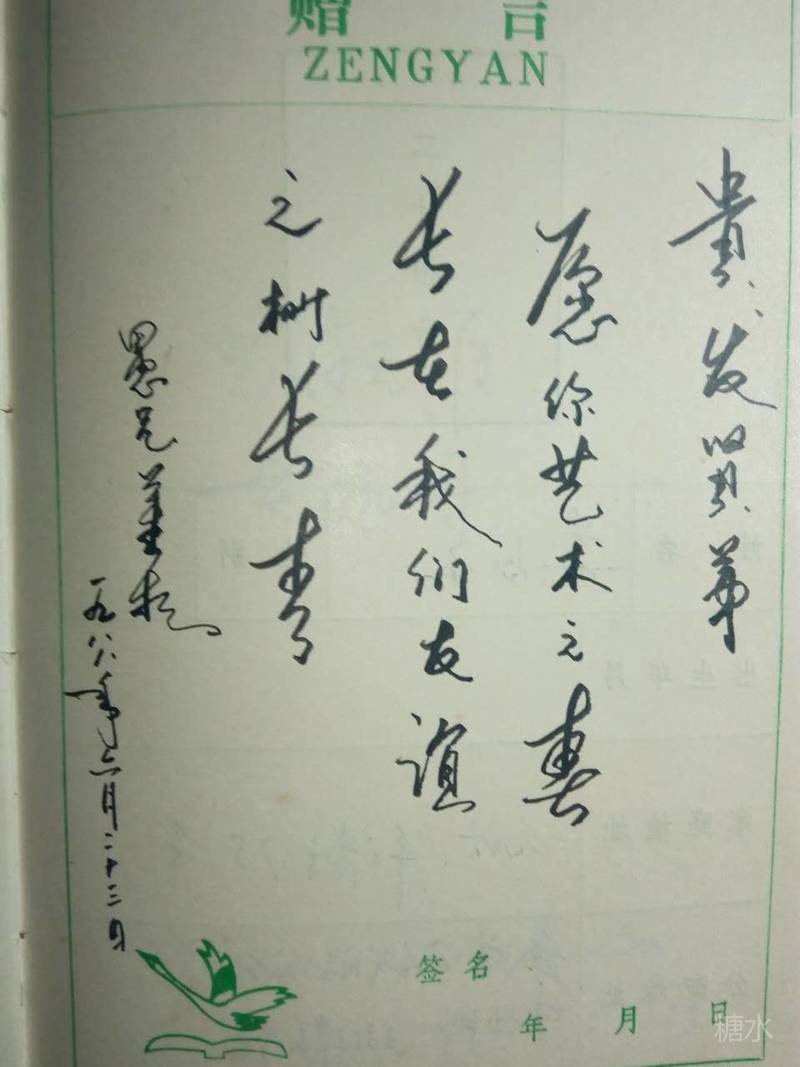 赠言
ZENGYAN
贵发贤弟
愿你艺术之春
长在我们友谊
之树长青
愚兄
一九八八年六月二十三日
签名
年月日
糖水